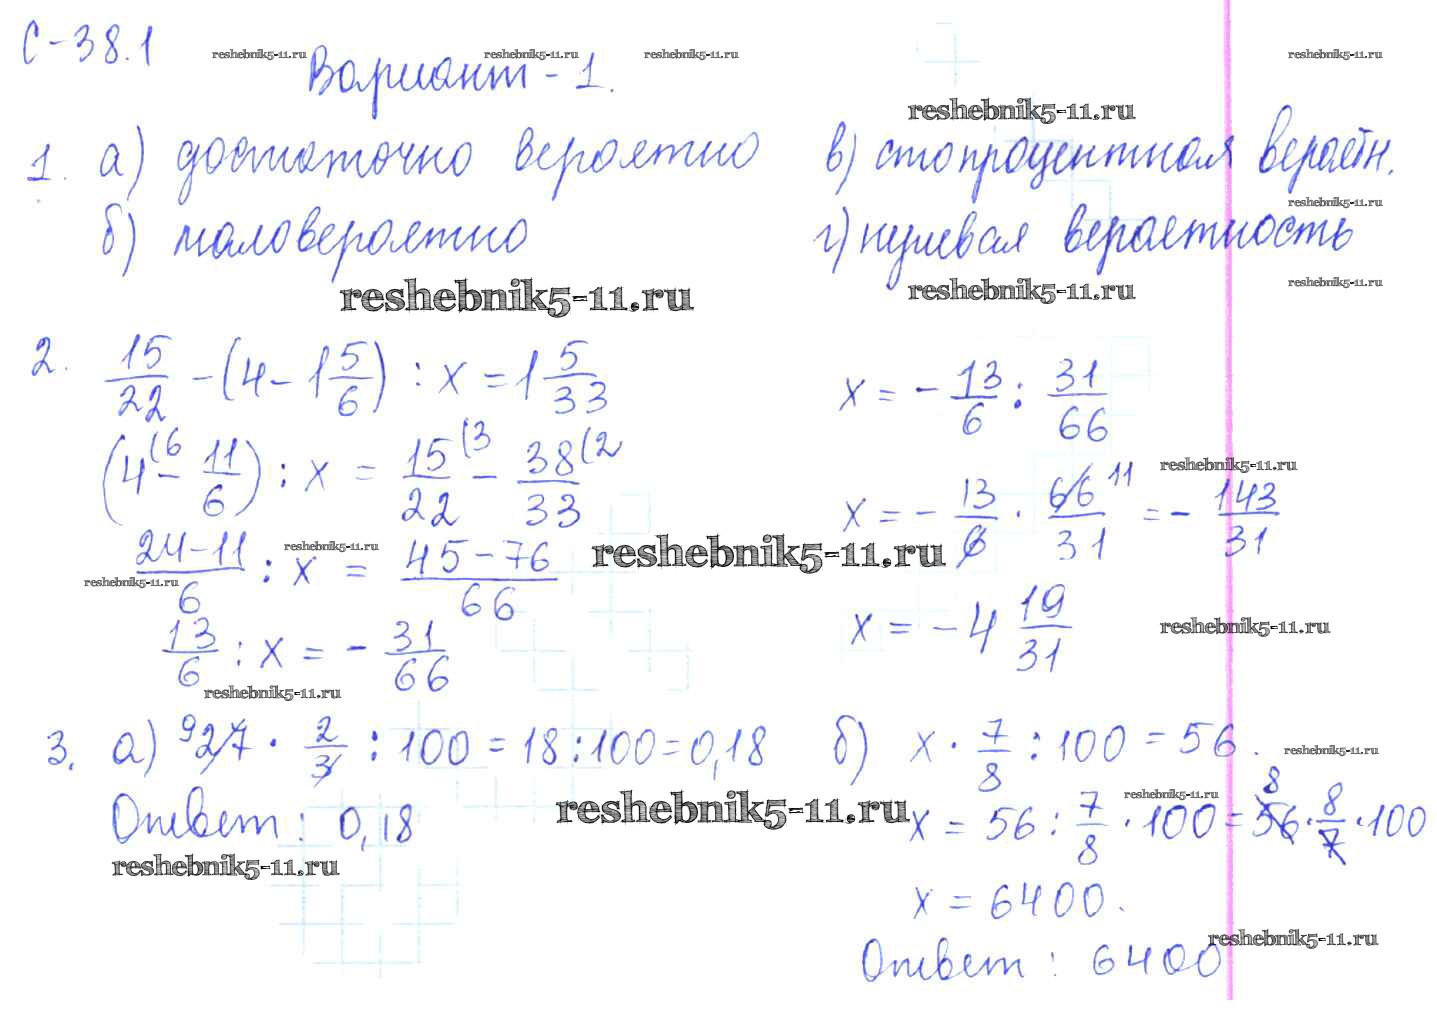 С-38.1
reshebnik5-11.ru reshebnik5-11.ru reshebnik5-11.ru reshebnik5-11.ru
Вариант - 1.
reshebnik5-11.ru
1. а) достаточно вероятно в) стопроцентная вероятн.
reshebnik5-11.ru
б) маловероятно г) нулевая вероятность
reshebnik5-11.ru reshebnik5-11.ru reshebnik5-11.ru
2. 15/22 - (4 - 1 5/6) : x = 1 5/33 x = - 13/6 : 31/66
(4(6 - 11/6) : x = 15(3/22 - 38(2/33
reshebnik5-11.ru
x = - 13/6 · 66 11/31 = - 143/31
24-11/6 : x = 45-76/66
reshebnik5-11.ru reshebnik5-11.ru
reshebnik5-11.ru
13/6 : x = - 31/66 x = - 4 19/31
reshebnik5-11.ru
reshebnik5-11.ru
3. а) 9 27 · 2/3 : 100 = 18 : 100 = 0,18 б) x · 7/8 : 100 = 56.
reshebnik5-11.ru
reshebnik5-11.ru
Ответ: 0,18 reshebnik5-11.ru x = 56 : 7/8 · 100 = 8 56 · 8/7 · 100
reshebnik5-11.ru
x = 6400.
reshebnik5-11.ru
Ответ: 6400